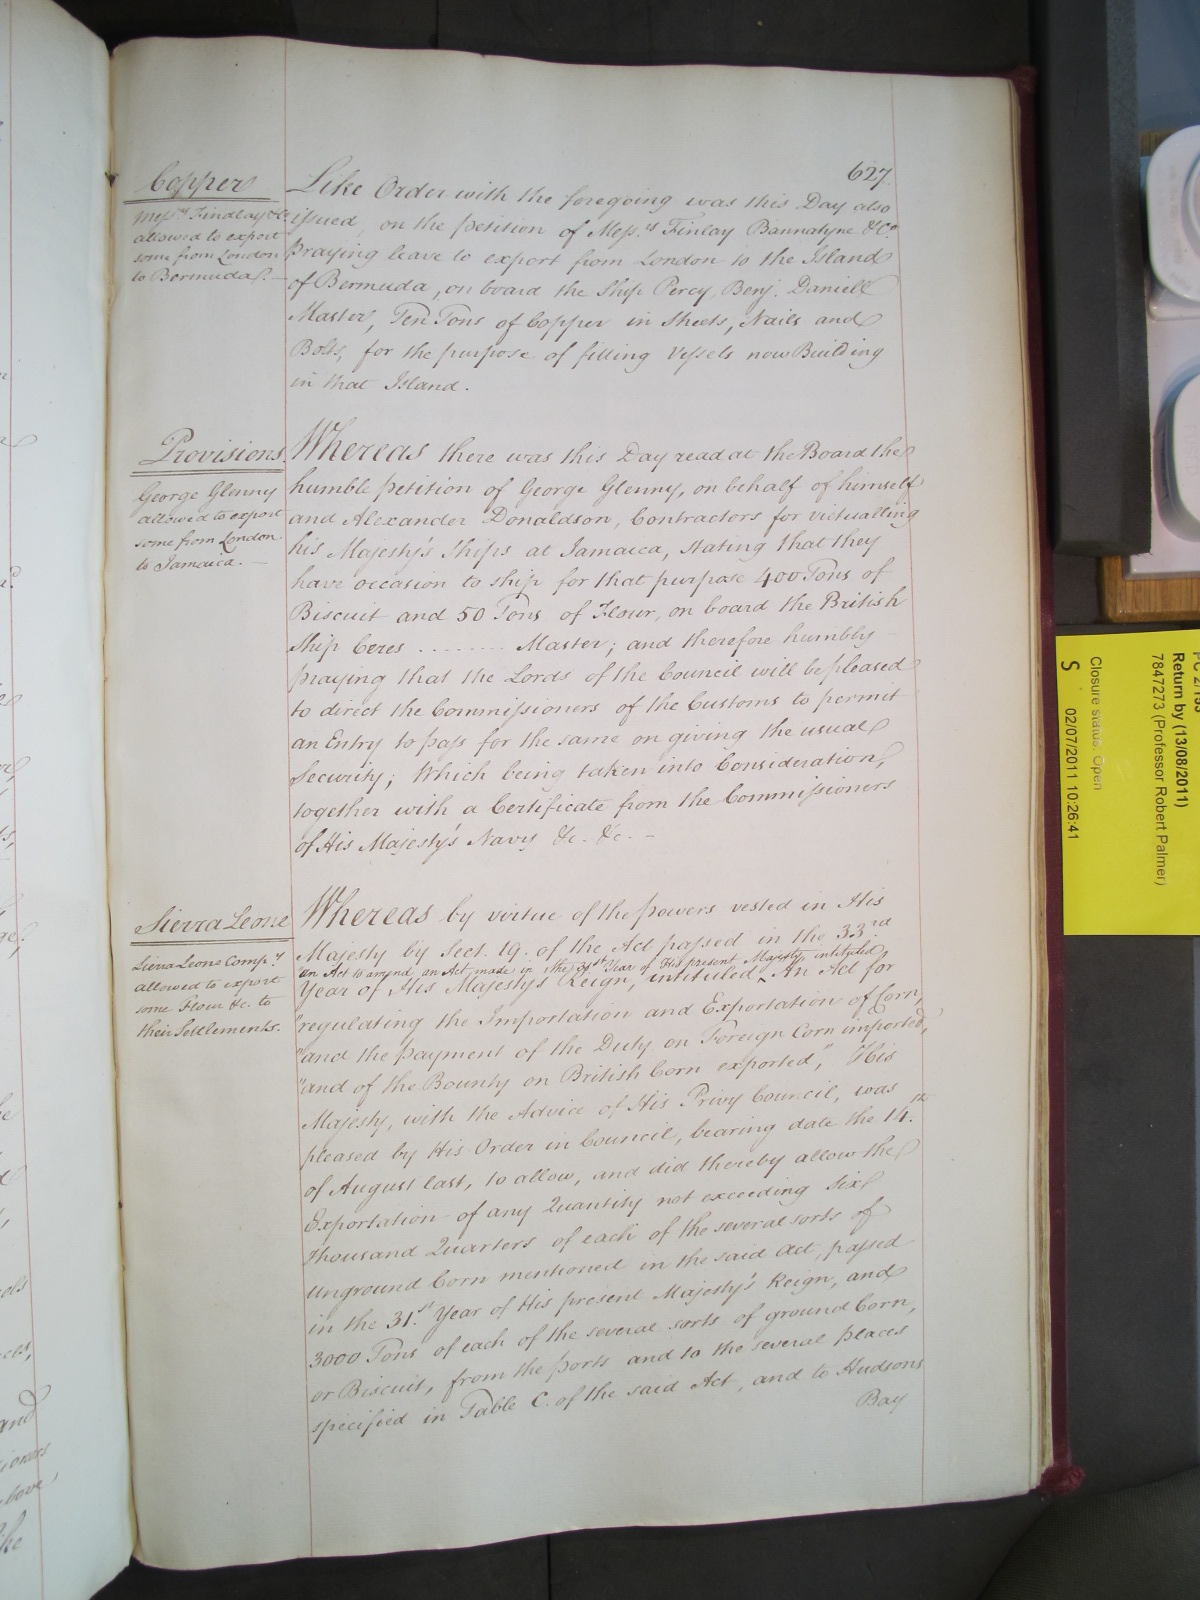 627
Copper
Mess.rs Findlay &c
allowed to export
some from London
to Bermuda.—
Like Order with the foregoing was this Day also
issued, on the petition of Mess.rs Finlay Bannatyne & Co.
Praying leave to export from London to the Island
of Bermuda, on board the Ship Percy, Benj. Daniell
Master, Ten Tons of Copper in Sheets, Nails and
Bolts, for the purpose of filling Vessels now Building
in that Island.
Provisions.
George Glenny
allowed to export
some from London
to Jamaica.—
Whereas there was this Day read at the Board the
humble petition of George Glenny, on behalf of himself
and Alexander Donaldson, Contractors for victualling
his Majesty's Ships at Jamaica, Stating that they
have occasion to ship for that purpose 400 Tons of
Biscuit and 50 Tons of Flour, on board the British
Ship Ceres ........ Master; and therefore humbly
praying that the Lords of the Council will be pleased
to direct the Commissioners of the Customs to permit
an Entry to pass for the same on giving the usual
Security; Which being taken into Consideration,
together with a Certificate from the Commissioners
of His Majesty's Navy &c. &c. —
Sierra Leone
Sierra Leone Comp.y
allowed to export
some Flour &c. to
their Settlements.
Whereas by virtue of the powers vested in His
Majesty by Sect. 19. of the Act passed in the 33rd
an Act to amend an Act made in the 31st Year of His present Majesty intituled,
Year of His Majesty's Reign, intituled ‸ An Act for
"regulating the Importation and Exportation of Corn,
"and the payment of the Duty on Foreign Corn imported,
"and of the Bounty on British Corn exported," His
Majesty, with the Advice of His Privy Council, was
pleased by His Order in Council, bearing date the 14.th
of August last, to allow, and did thereby allow the
Exportation of any Quantity not exceeding Six
Thousand Quarters of each of the several sorts of
unground Corn mentioned in the said Act, passed
in the 31.st Year of His present Majesty's Reign, and
3000 Tons of each of the several sorts of ground Corn,
or Biscuit, from the ports and to the several places
specified in Table C. of the said Act, and to Hudsons
Bay
Return by (13/08/2011)
7847273 (Professor Robert Palmer)
Closure status: Open
S 02/07/2011 10:26:41